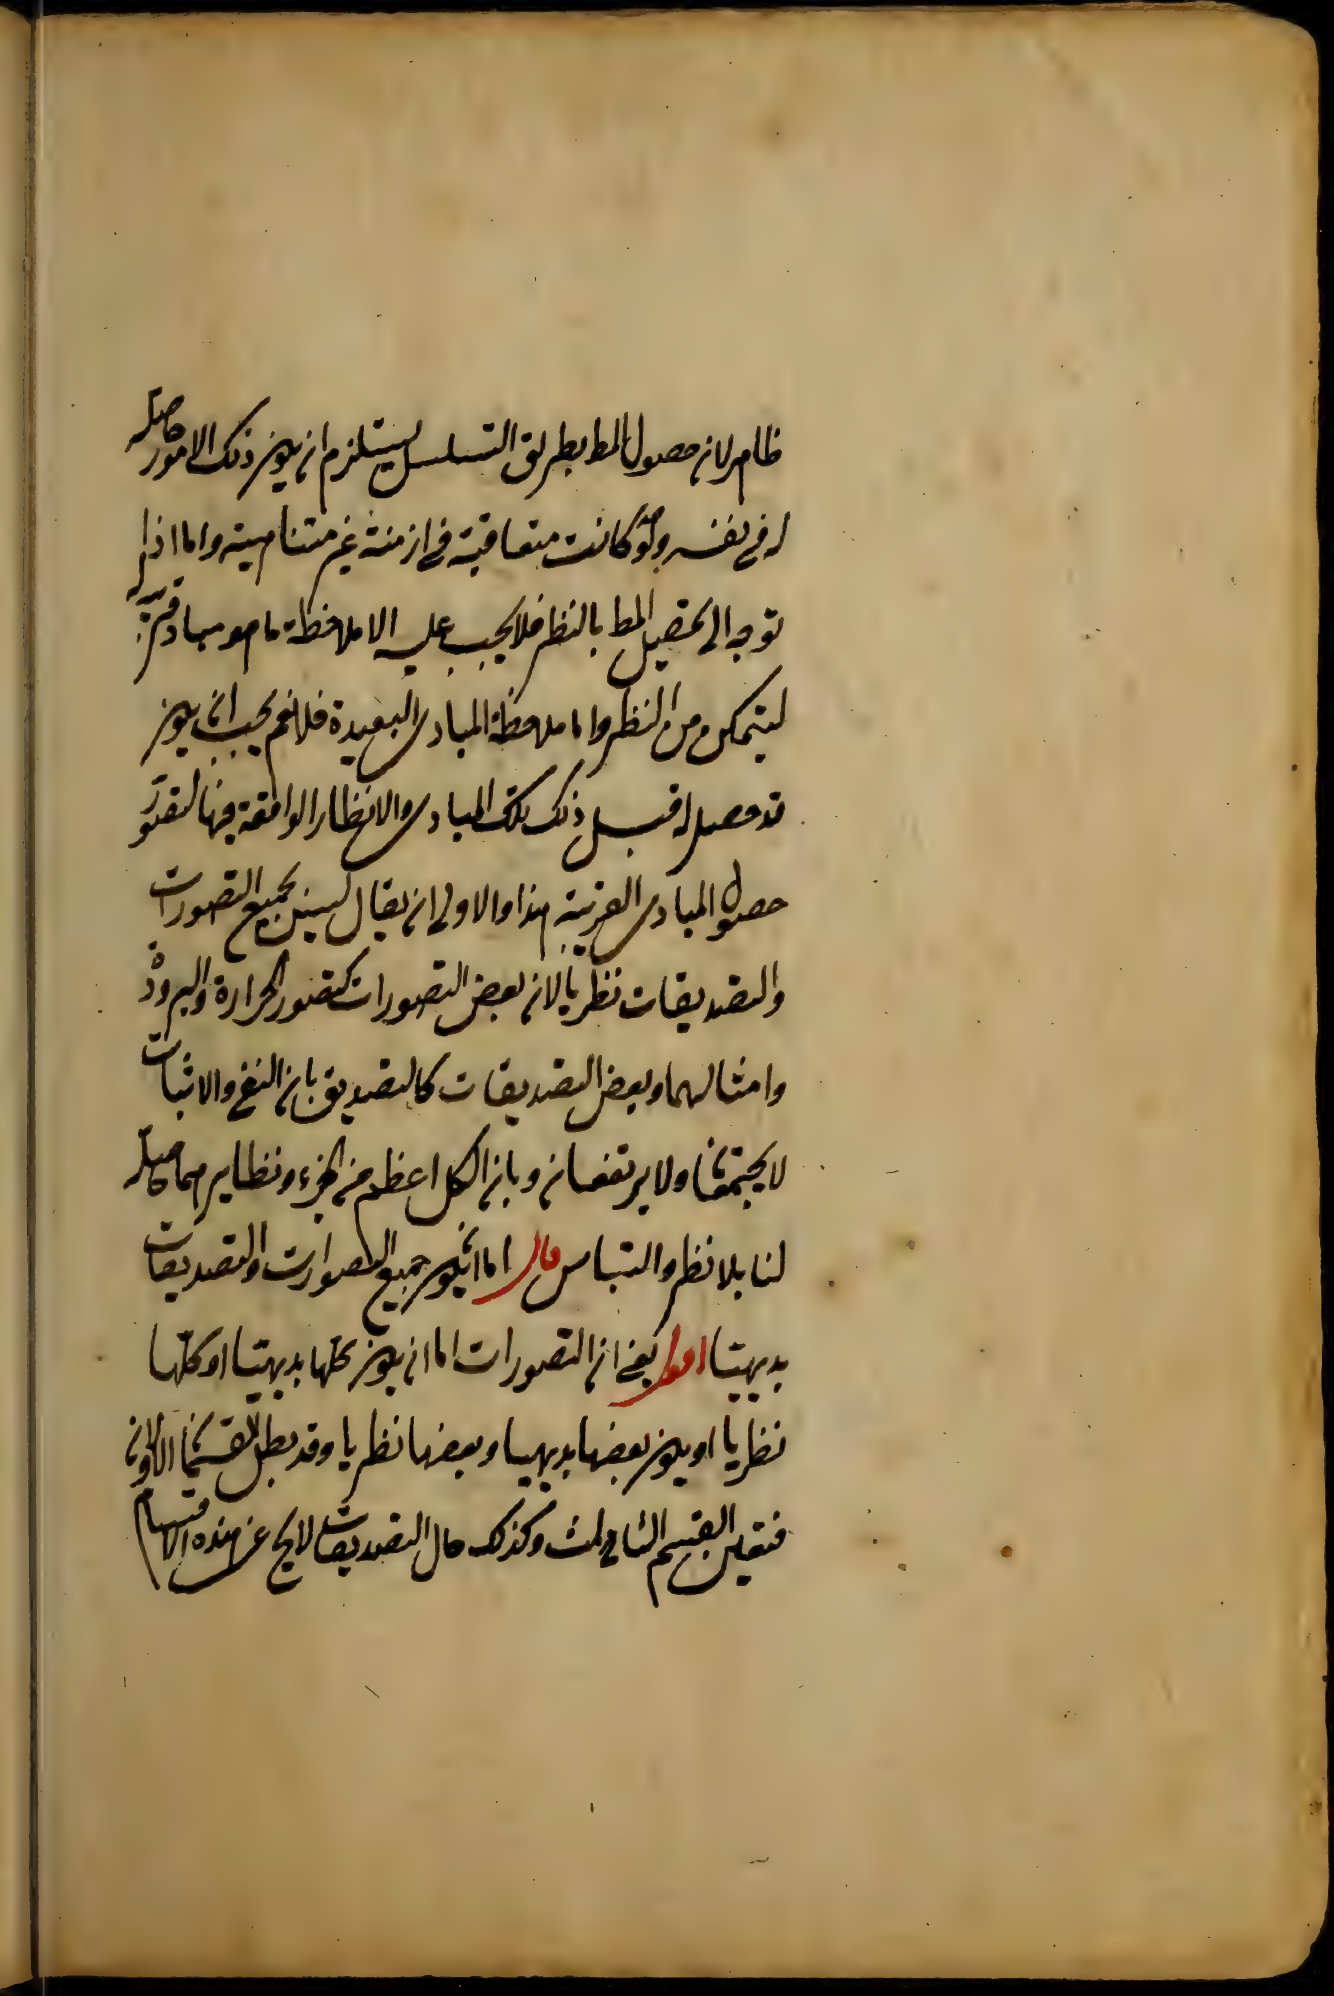 ظاهر لان حصول المط بطريق التسلسل يستلزم ان يكون ذلك الامور حاصلة
له في نفسه ولو كانت متعاقبة في ازمنة غير متناهية واما اذا
توجه الى تحصيل المط بالنظر فلا يجب عليه الا ملاحظة ما هو مباد قريبة له
ليتمكن من النظر واما ملاحظة المبادى البعيدة فلا نعم يجب ان يكون
قد حصل له قبل ذلك تلك المبادى والانظار الواقعة فيها ليتصور
حصول المبادى القريبة هذا والاولى ان يقال ليس جميع التصورات
والتصديقات نظريا لان بعض التصورات كتصور الحرارة والبرودة
وامثالهما وبعض التصديقات كالتصديق بان النفي والاثبات
لا يجتمعان ولا يرتفعان وبان الكل اعظم من الجزء ونظايرهما حاصلة
لنا بلا نظر والتباس قال اما ان يكون جميع التصورات والتصديقات
بديهيا اقول يعني ان التصورات اما ان يكون كلها بديهيا او كلها
نظريا او يكون بعضها بديهيا وبعضها نظريا وقد بطل القسمان الاولان
فتعين القسم الثالث وكذلك حال التصديقات لا يخ عن هذه الاقسام